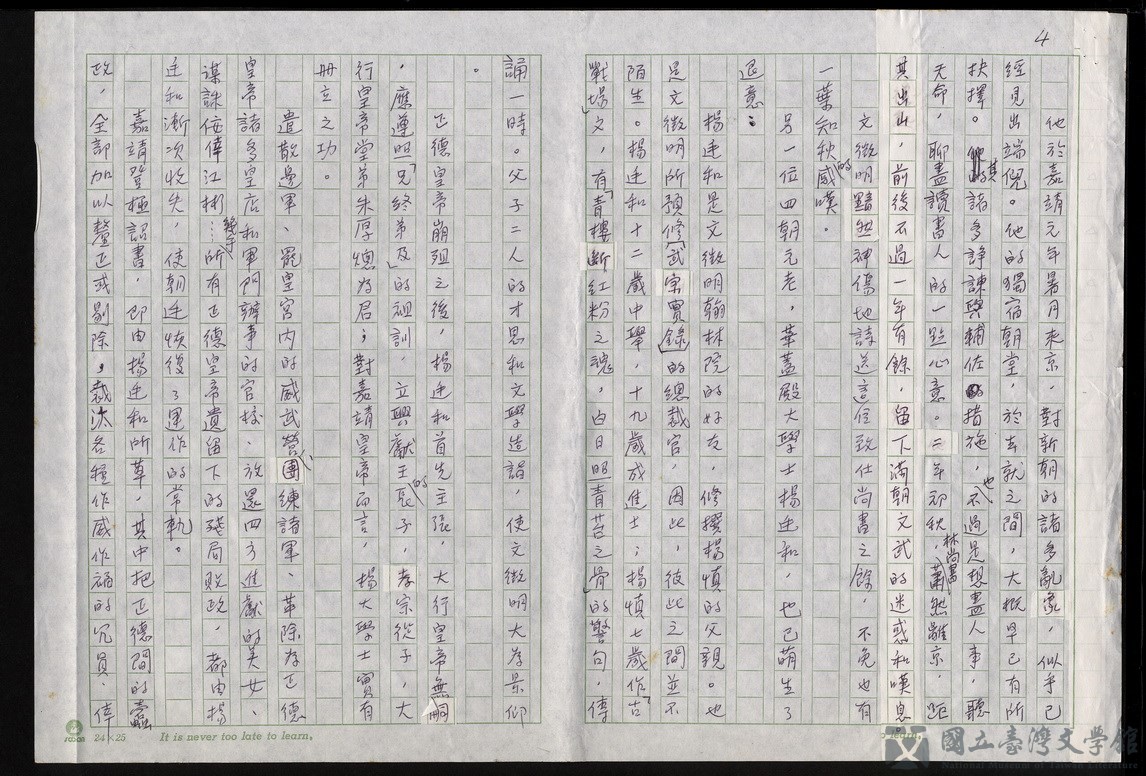 4
他於嘉靖元年暑月來京,對新朝的諸多亂象,似乎已
經見出端倪。他的獨宿朝堂,於去就之間,大概早已有所
抉擇。其諸多諍諫與輔佐措施,也不過是想盡人事,聽
天命,聊盡讀書人的一點心意。二年初秋,林尚書蕭然離京,距
其出山,前後不過一年有餘,留下滿朝文武的迷惑和嘆息。
文徵明黯然神傷地詩送這位致仕尚書之餘,不免也有
一葉知秋的感嘆。
另一位四朝元老,華蓋殿大學士楊廷和,也已萌生了
退意:
楊廷和是文徵明翰林院的好友,修撰楊慎的父親。也
是文徵明所預修「武宗實錄」的總裁官,因此,彼此之間並不
陌生。楊廷和十二歲中舉,十九歲成進士;楊慎七歲作「古
戰場文」,有「青樓斷紅粉之魂,白日照青苔之骨」的警句,傳
誦一時。父子二人的才思和文學造詣,使文徵明大為景仰
。
正德皇帝崩殂之後,楊廷和首先主張,大行皇帝無嗣
,應遵照「兄終弟及」的祖訓,立興獻王的長子,孝宗從子,大
行皇帝堂弟朱厚熜為君;對嘉靖皇帝而言,楊大學士實有
冊立之功。
遣散邊軍、罷皇宮內的威武營、團練諸軍、革除為正德
皇帝諸多皇店和軍門辦事的官校、放還四方進獻的美女、
謀誅佞倖江彬……幾乎所有正德皇帝遺留下的殘局敗政,都由楊
廷和漸次收失,使朝廷恢復了運作的常軌。
嘉靖登極詔書,即由楊廷和所草,其中把正德間的蠹
政,全部加以釐正或剔除,裁汰各種作威作福的冗員、倖
24×25 It is never too late to learn,
國立臺灣文學館
National Museum of Taiwan Literature